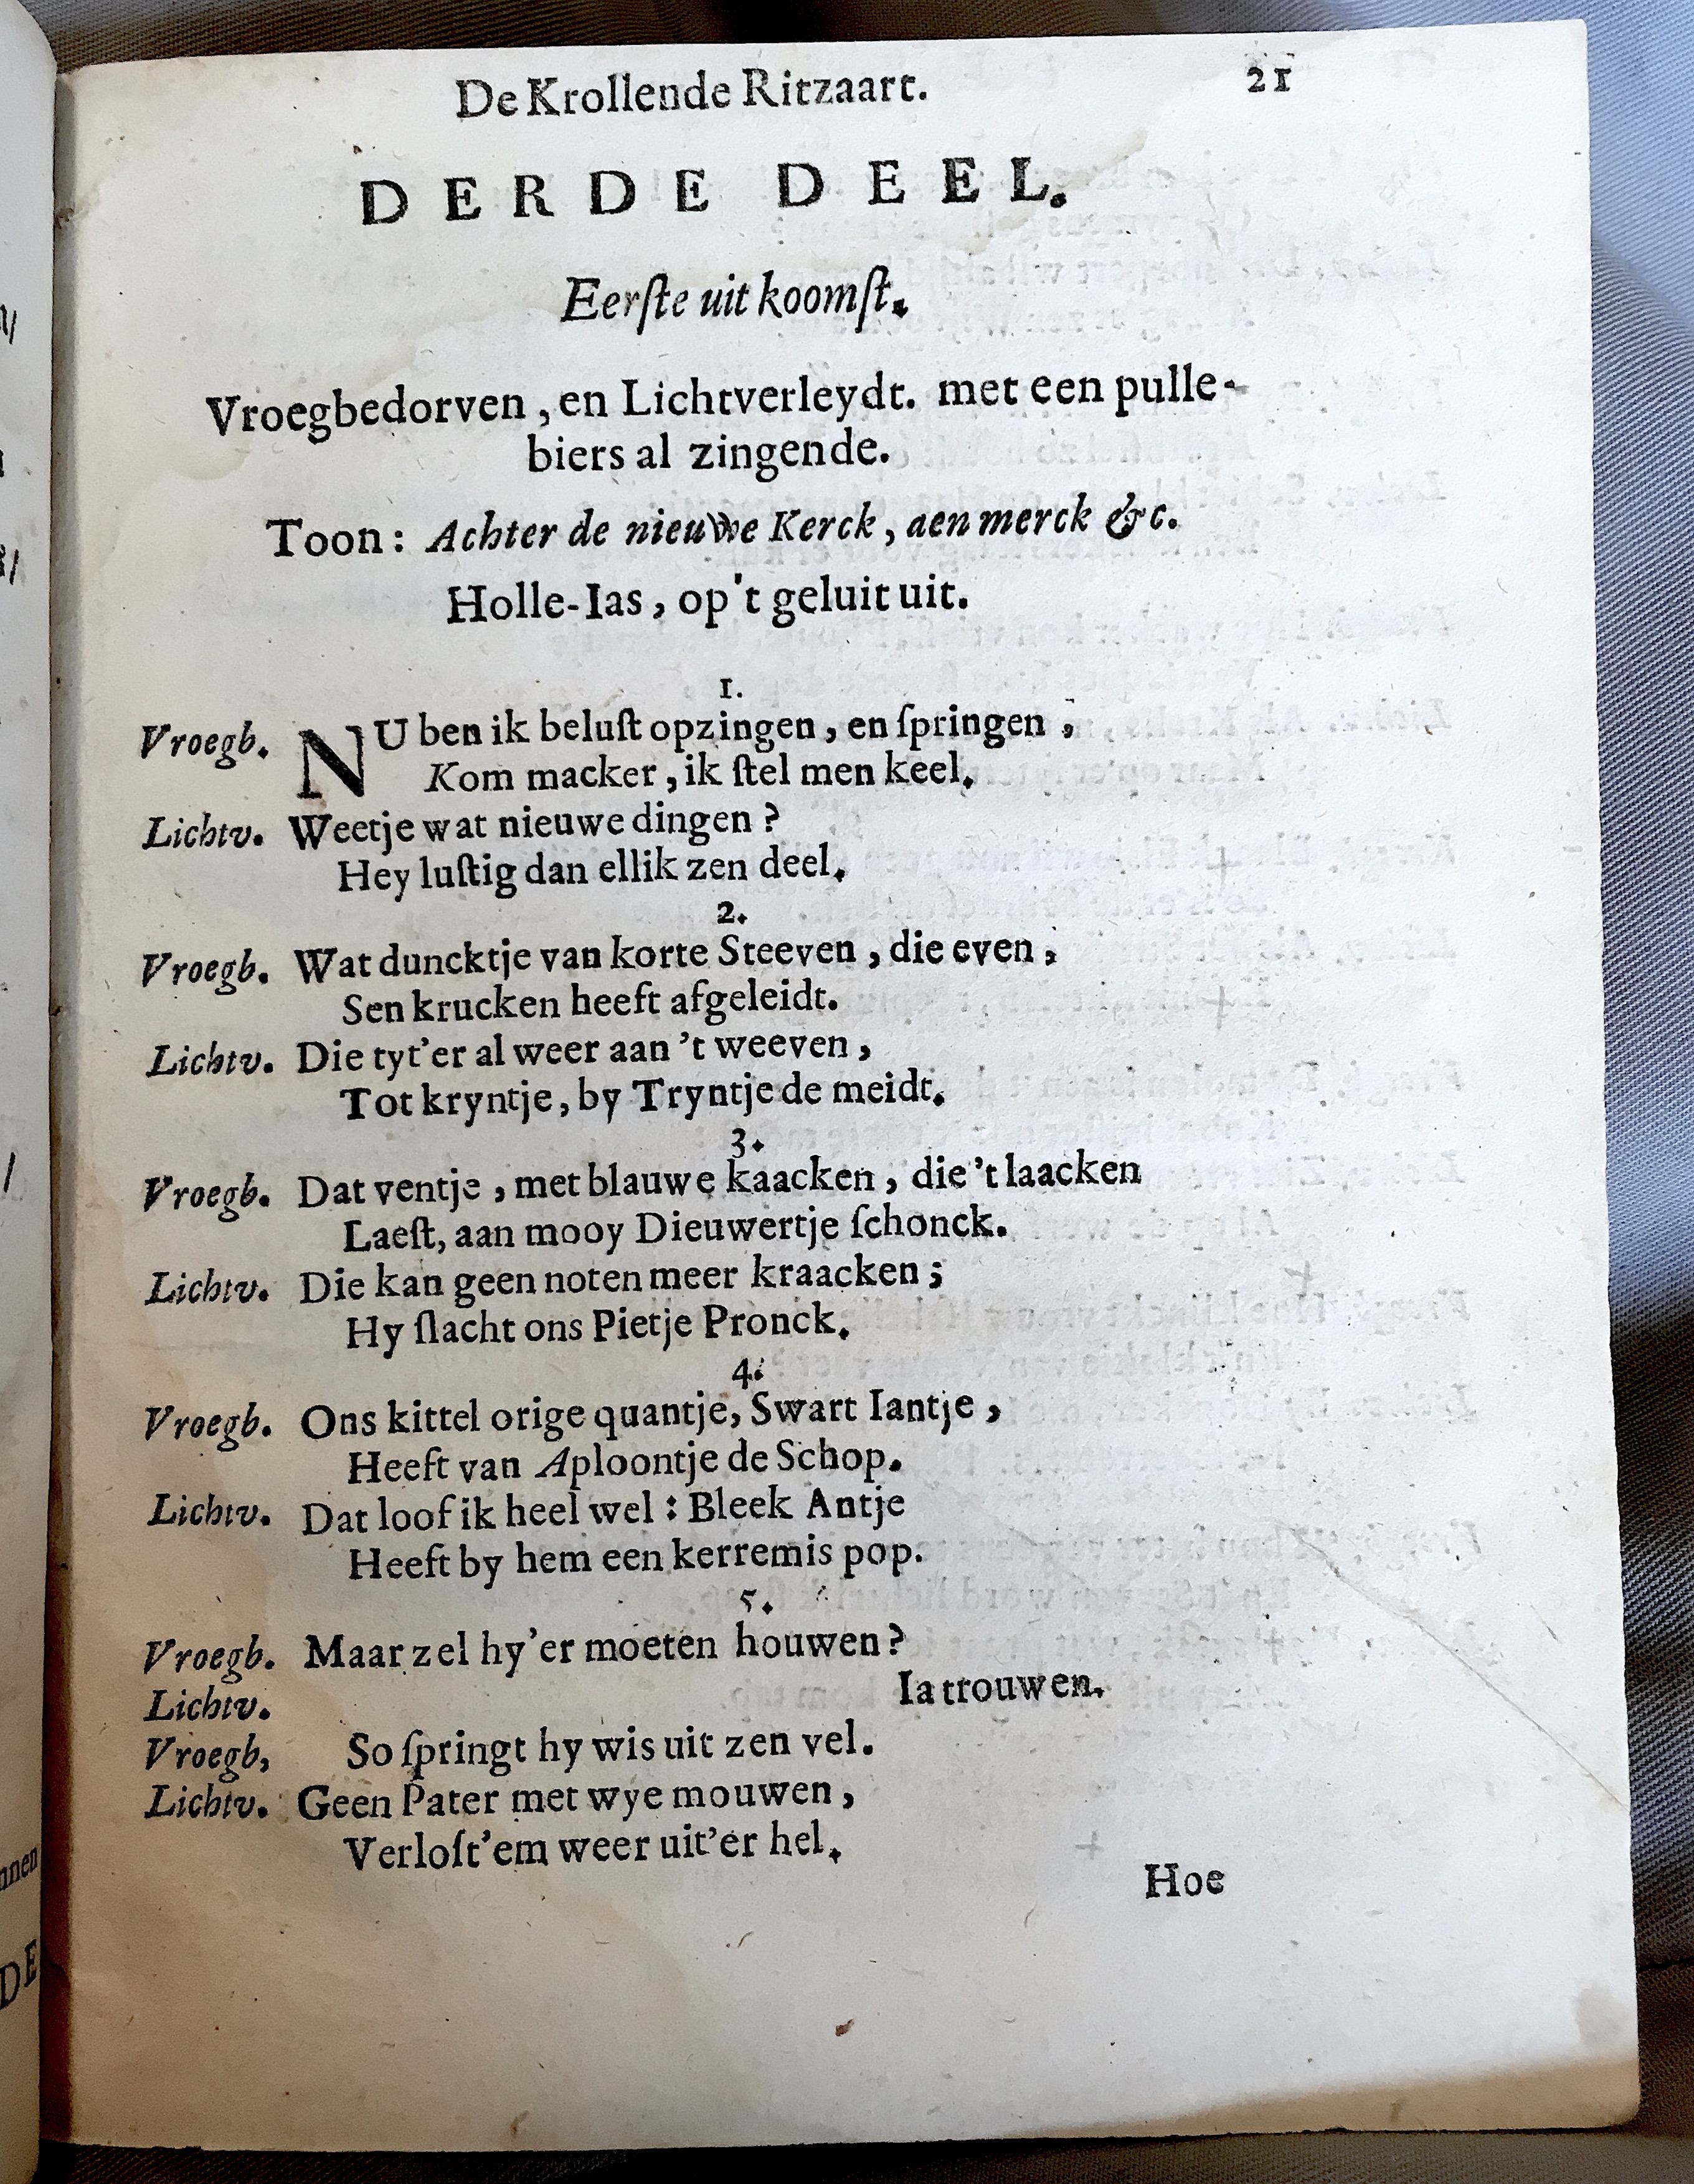 De Krollende Ritzaart. 21
DERDE DEEL.
Eerſte uitkoomſt.
Vroegbedorven, en Lichtverleydt. met een pulle-
biers al zingende.
Toon: Achter de nieuwe Kerck, aenmerck &c.
Holle-Ias, op't geluit uit.
1.
Vroegb. NU ben ik beluſt op zingen, en ſpringen,
Kom macker, ik ſtel men keel.
Lichtv. Weetje wat nieuwe dingen?
Hey luſtig dan ellik zen deel.
2.
Vroegb. Wat duncktje van korte Steeven, die even,
Sen krucken heeft afgeleidt.
Lichtv. Die tyt'er al weer aan 't weeven,
Tot kryntje, by Tryntje de meidt.
3.
Vroegb. Dat ventje, met blauwe kaacken, die 't laacken
Laeſt, aan mooy Dieuwertje ſchonck.
Lichtv. Die kan geen noten meer kraacken;
Hy ſlacht ons Pietje Pronck.
4.
Vroegb. Ons kittel orige quantje, Swart Iantje,
Heeft van Aploontje de Schop.
Lichtv. Dat loof ik heel wel: Bleek Antje
Heeft by hem een kerremis pop.
5.
Vroegb. Maar zel hy'er moeten houwen?
Lichtv. Ia trouwen.
Vroegb, So ſpringt hy wis uit zen vel.
Lichtv. Geen Pater met wye mouwen,
Verloſt'em weer uit'er hel.
Hoe
nnen
DE